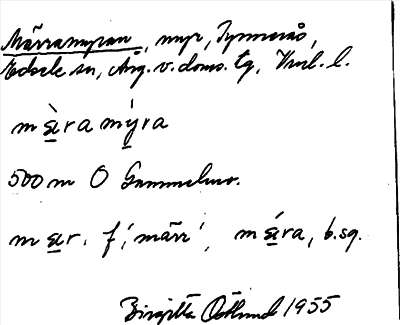 Märramyran, myr, Tynnerås,
Edsele sn, Ång. v. doms. tg, Vnrl. l.
mæ̀ra mýra
500 m O Gammelmo.
mær. f, 'märr', mǽra, b. sg.
Birgitta Östlund 1955